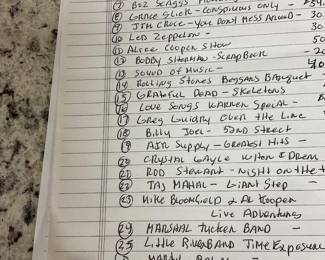 ⑦ Boz Scaggs
⑧ Grace Slick - Conspicuous Only -
⑨ Jim Croce - You Don't Mess Around - 30
⑩ Led Zeppelin -
⑪ Alice Cooper Show
⑫ Bobby Sherman - Scrap Book
⑬ Sound of Music -
⑭ Rolling Stones Beggars Banquet
⑮ Grateful Dead - Skeletons
⑯ Love Songs Warren Special -
⑰ Greg Guidry Over the Line
⑱ Billy Joel - 52nd Street
⑲ Air Supply - Greatest Hits -
⑳ Crystal Gayle When I Dream
㉑ Rod Stewart - Night on the T
㉒ Taj Mahal - Giant Step -
㉓ Mike Bloomfield & Al Kooper
Live Adventures
㉔ Marshal Tucker Band -
㉕ Little River Band Time Exposure